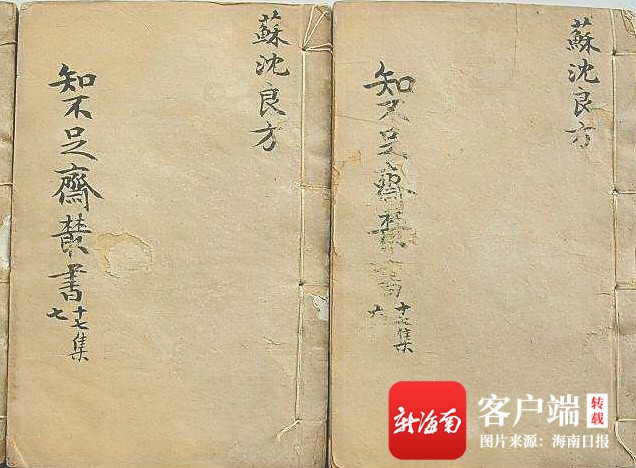 蘇沈良方
知不足齋叢書
十七集
七
蘇沈良方
知不足齋叢書
十七集
六
新海南
客户端
转载
图片来源：海南日报